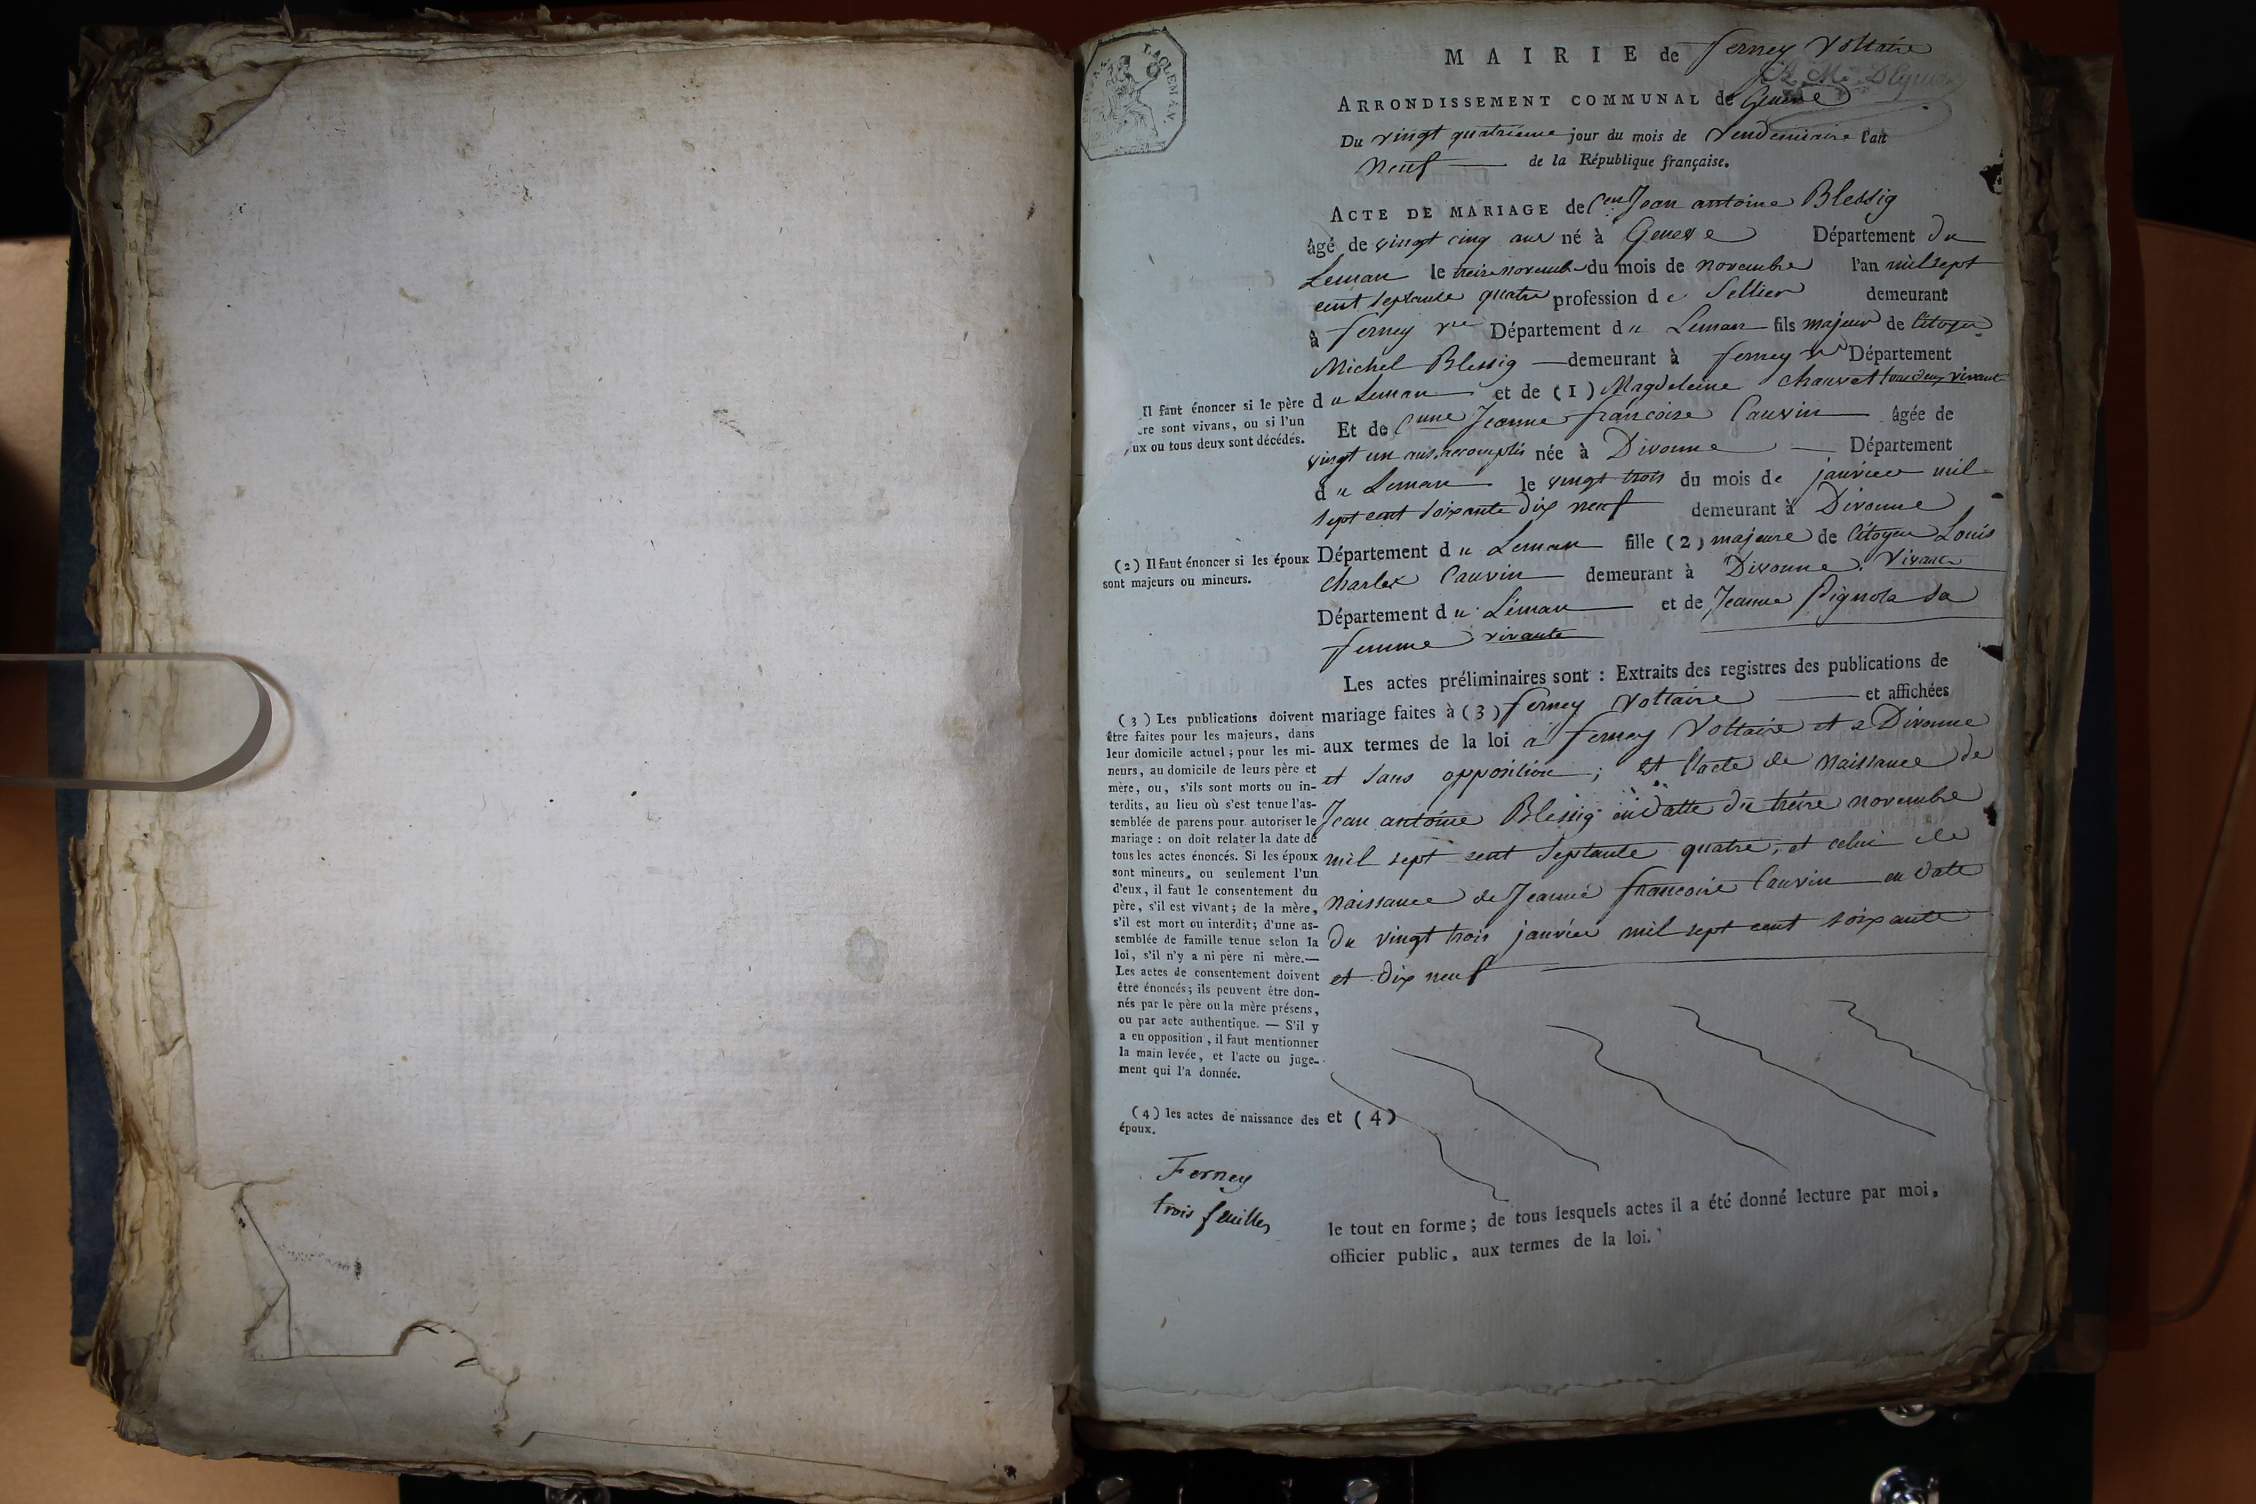 MAIRIE de ferney Voltaire
ARRONDISSEMENT COMMUNAL de Geneve
Du vingt quatrieme jour du mois de Vendemiaire l'an
Neuf de la République française.
ACTE DE MARIAGE de Cen Jean antoine Blessig
âgé de vingt cinq ans né à Geneve Département du
Leman le treize novemb du mois de novembre l'an mil sept
cent septante quatre profession de Sellier demeurant
à ferney Vre Département du Leman fils majeur de Citoyen
Michel Blessig demeurant à ferney Vre Département
du Leman et de (1) Magdeleine Chauvet tous deux vivant
Il faut énoncer si le père
re sont vivans, ou si l'un
ux ou tous deux sont décédés.
Et de Cnne Jeanne françoise Cauvin âgée de
vingt un ans accomplis née à Divonne Département
du Leman le vingt trois du mois de janvier mil
sept cent soixante dix neuf demeurant à Divonne
(2) Il faut énoncer si les époux
sont majeurs ou mineurs.
Département du Leman fille (2) majeure de Citoyen Louis
Charles Cauvin demeurant à Divonne. Vivant
Département du Léman et de Jeanne Pignola sa
femme vivante
Les actes préliminaires sont : Extraits des registres des publications de
mariage faites à (3) ferney Voltaire et affichées
aux termes de la loi à ferney Voltaire et a Divonne
et sans opposition ; et l'acte de Naissance de
Jean antoine Blessig en datte du treize novembre
mil sept cent septante quatre, et celui de
Naissance de Jeanne françoise Cauvin en date
du vingt trois janvier mil sept cent soixante
et dix neuf
(3) Les publications doivent
être faites pour les majeurs, dans
leur domicile actuel ; pour les mi-
neurs, au domicile de leurs père et
mère, ou, s'ils sont morts ou in-
terdits, au lieu où s'est tenue l'as-
semblée de parens pour autoriser le
mariage : on doit relater la date de
tous les actes énoncés. Si les époux
sont mineurs, ou seulement l'un
d'eux, il faut le consentement du
père, s'il est vivant ; de la mère,
s'il est mort ou interdit ; d'une as-
semblée de famille tenue selon la
loi, s'il n'y a ni père ni mère.—
Les actes de consentement doivent
être énoncés ; ils peuvent être don-
nés par le père ou la mère présens,
ou par acte authentique. — S'il y
a eu opposition, il faut mentionner
la main levée, et l'acte ou juge-
ment qui l'a donnée.
(4) les actes de naissance des
époux.
et (4)
Ferney
trois feuilles
le tout en forme ; de tous lesquels actes il a été donné lecture par moi,
officier public, aux termes de la loi.